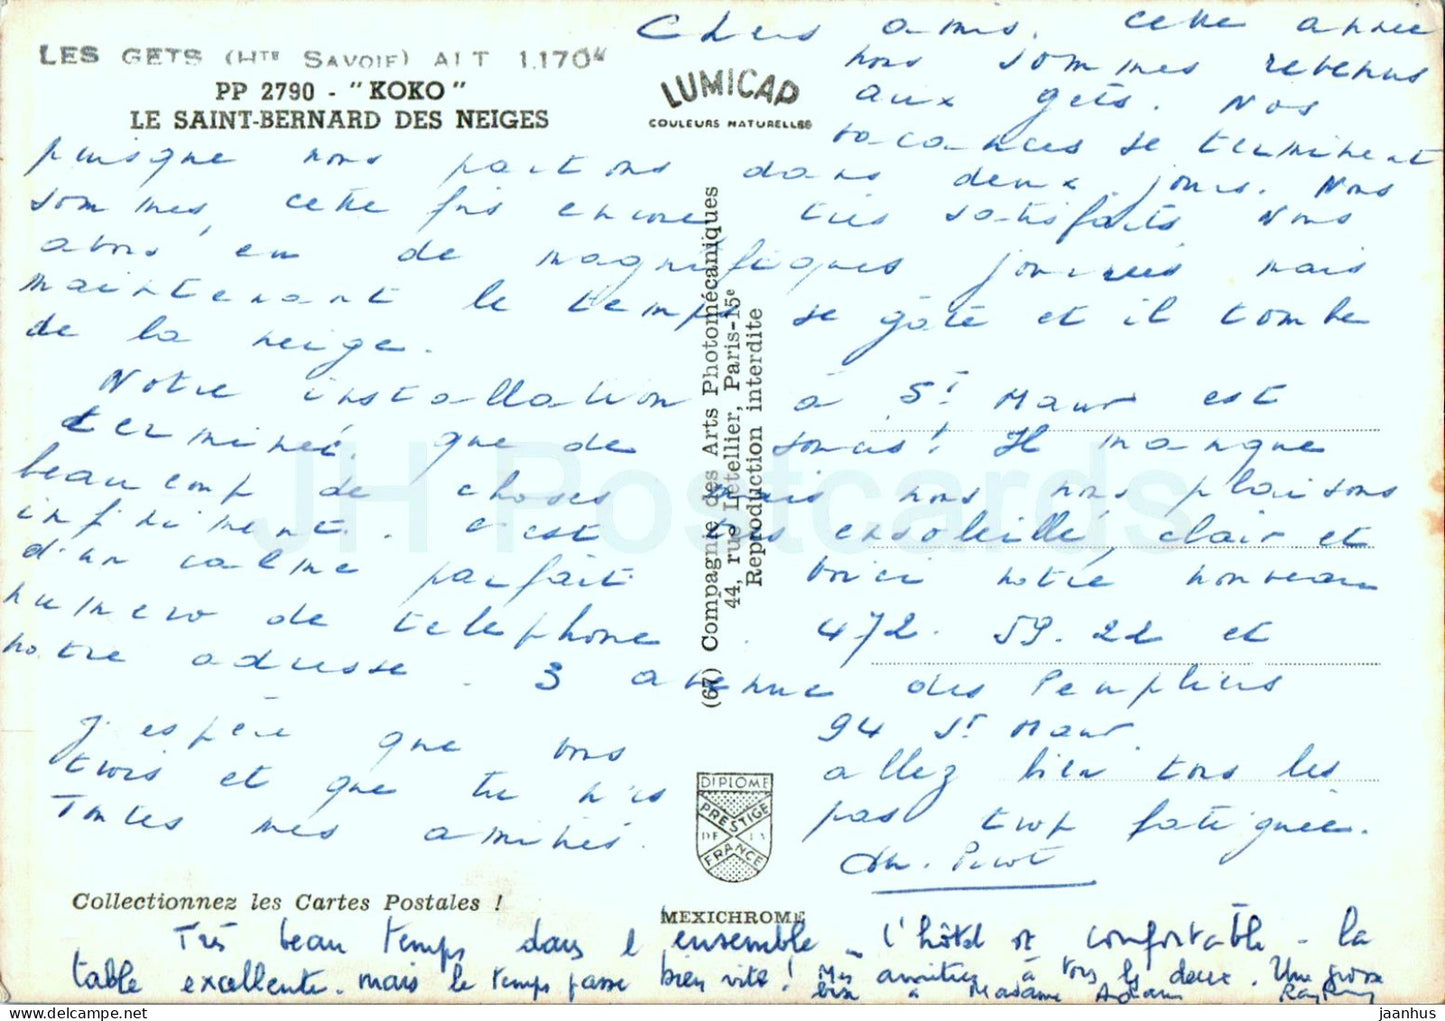 LES GETS (HTE SAVOIE) ALT 1.170M
PP 2790 - "KOKO"
LE SAINT-BERNARD DES NEIGES
LUMICAP
COULEURS NATURELLES
Chers amis, cette année
nous sommes revenus
aux gets. Nos
vacances se terminent
puisque nous partons dans deux jours. Nous
sommes, cette fois encore très satisfaits Nous
avons eu de magnifiques journées mais
maintenant le temps se gâte et il tombe
de la neige.
Notre installation à St Maur est
terminée. que de soucis! Il manque
beaucoup de choses mais nous nous plaisons
infiniment. c'est très ensoleillé, clair et
d'un calme parfait Voici notre nouveau
numero de telephone. 472. 59. 22 et
notre adresse. 3 avenue des Peupliers
94 St Maur.
J'espère que vous allez bien tous les
trois et que tu n'es pas trop fatiguée.
Toutes mes amitiés.
(67) Compagnie des Arts Photomécaniques
44, rue Letellier, Paris-15e
Reproduction interdite
DIPLOME
PRESTIGE
DE LA
FRANCE
Collectionnez les Cartes Postales !
MEXICHROME
Très beau temps dans l'ensemble - l'hôtel est confortable - la
table excellente. mais le temps passe bien vite! Mes amitiés à tous les deux. Une grosse
bise à Madame Adam
JH Postcards
jaanhus - delcampe.net